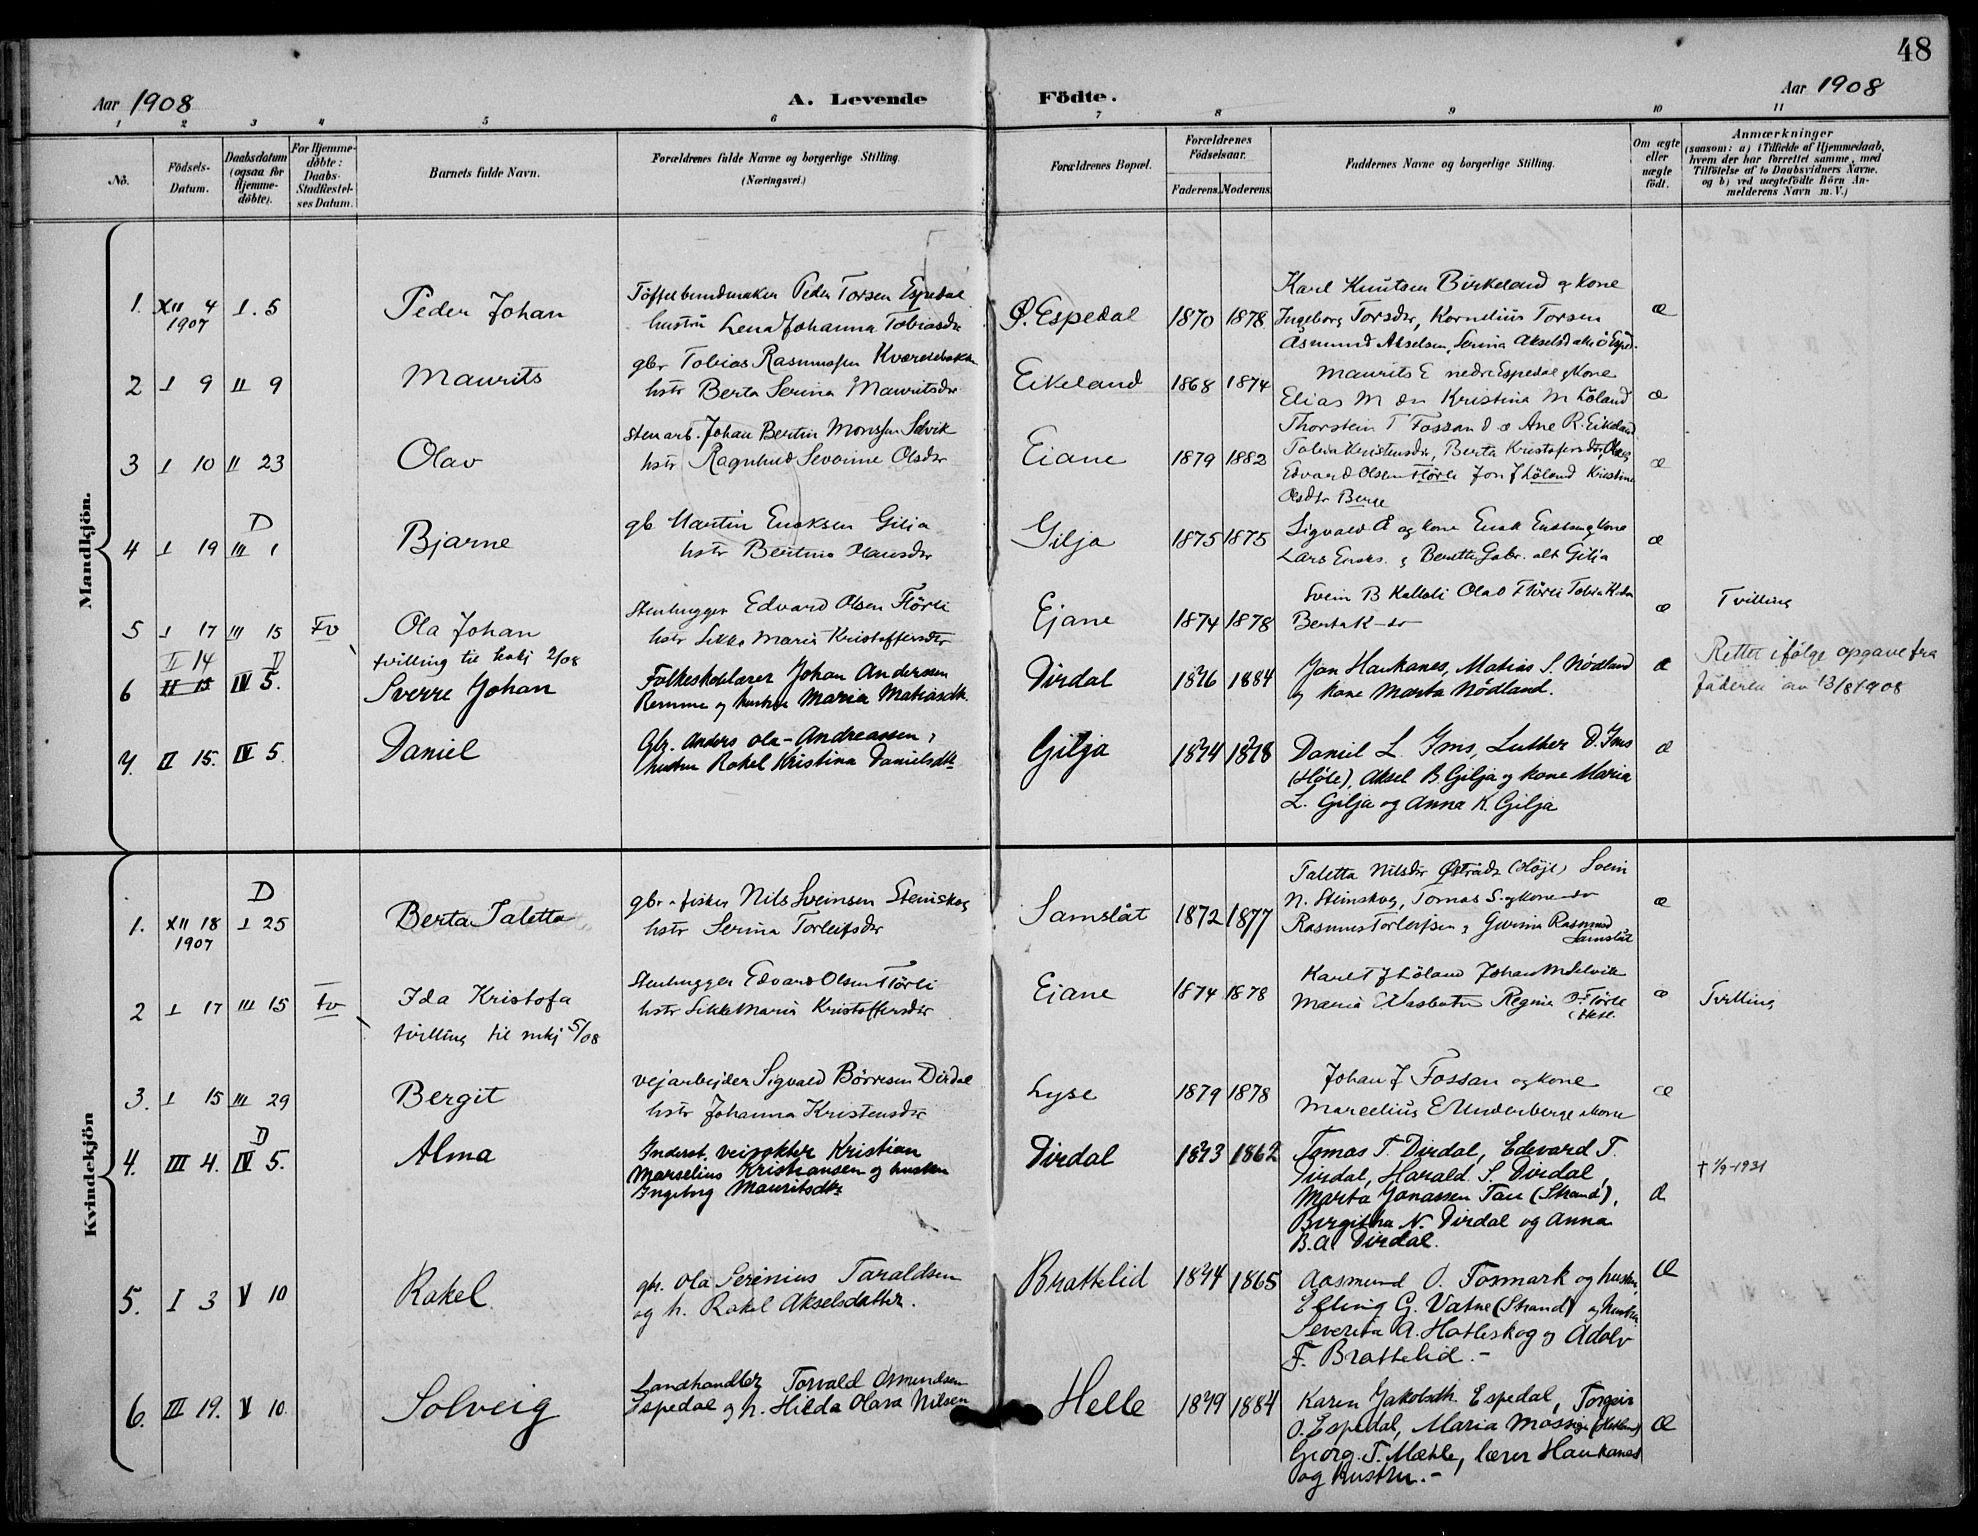 48
Aar 1908
A. Levende
Födte.
Aar 1908
1 2 3 4 5 6 7 8 9 10 11
No.
Födsels-Datum.
Daabsdatum (ogsaa för Hjemme-döbte).
For Hjemme-döbte: Daabs-Stadfæstel-ses Datum.
Barnets fulde Navn.
Forældrenes fulde Navne og borgerlige Stilling.
(Næringsvei.)
Forældrenes Bopæl.
Forældrenes Födselsaar.
Faderens. Moderens.
Faddernes Navne og borgerlige Stilling.
Om ægte eller uægte födt.
Anmærkninger
(saasom: a) i Tilfælde af Hjemmedaab,
hvem der har forrettet samme, med
Tilföielse af to Daabsvidners Navne,
og b) ved uægtefödte Börn An-
melderens Navn m. V.)
Mandkjön.
1. XII 4 1907 I. 5
Peder Johan
Töffelbundmaker Peder Torsen Espedal
hustru Lena Johanna Tobiasdr
Ö. Espedal
1870 1878
Karl Knutsen Birkeland og kone
Ingeborg Torsdr, Kornelius Torsen
Asmund Akselsen, Serina Akselsd alle ö Esped.
æ
2 I 9 II 9
Maurits
gbr Tobias Rasmussen
hstr Berta Serina Mauritsdr
Eikeland
1868 1874
Maurits E nedre Espedal og kone
Elias M Kristina M Löland
Thorstein T Fossan d o Ane R. Eikeland
æ
3 I 10 II 23
Olav
Stenarb. Johan Bertin Monsen Selvik
hstr Ragnhild Olsdr
Eiane
1879 1882
Tobia Kristensdr, Berta Kristofersdr, Olav
Edvard Olsen Flörli Jon J Löland Kristine
Olsdtr Berge
æ
4 I 19 D III 1
Bjarne
gb Martin Eriksen Gilja
hstr Bertina Olausdr
Gilja
1875 1875
Sigvald Å og kone Erik og kone
Lars Eriks. og Gabr. alle Gilja
æ
5 I 17 III 15 Fv
Ola Johan
tvilling til kvkj 2/08
Stenhugger Edvard Olsen Flörli
hstr Sikke Maria Kristoffersdtr
Ejane
1874 1878
Svein B Kallali Olav Flörli Tobia K.dr
Berta K-dr
æ
Tvilling
6 II 14 II 15 D IV 5.
Sverre Johan
Folkeskolelærer Johan Andersen
Remme og hustru Maria Matiasdtr.
Dirdal
1876 1884
Jon Haukanes, Matias S. Nödland
og kone Marta Nödland.
æ
Rettet ifölge opgave fra
faderen av 13/8 1908
7. II 15. IV 5.
Daniel
Gbr. Anders Ola-Andreassen,
hustru Rakel Kristina Danielsdtr
Gilja
1874 1878
Daniel L. Ims, Luther D. Ims
(Höle), Aksel B. Gilja og kone Maria
L. Gilja og Anna K. Gilja
æ
Kvindekjön
1. XII 18 1907 D I 25
Berta Taletta
gbr - fisker Nils Sveinsen Steinskog
hstr Serina Torleifsdr
Samslåt
1872 1877
Taletta Nilsdtr Östråda (Höjl) Svein
N. Steinskog, Tomas S. og kone
Rasmus Torleifsen og Gurina Rasmusd
Samslåt
æ
2 I 17 III 15 Fv
Ida Kristofa
tvilling til mkj 5/08
Stenhugger Edvard Olsen Flörli
hstr Sikke Maria Kristoffersdr
Eiane
1874 1878
Karl T J Löland Johan M Selvik
Maria Regina
æ
Tvilling
3. I 15 III 29
Bergit
vejarbejder Sigvald Börresen Dirdal
hstr Johanna Kristensdtr
Lyse
1879 1878
Johan J Fossan og kone
Marcelius E Underberge &kone
æ
4. III 4. D IV 5.
Alma
Inderst. veivokter Kristian
Marselius Kristiansen og hustru
Ingeborg Mauritsdtr
Dirdal
1873 1862
Tomas T. Dirdal, Edvard T.
Dirdal, Harald S. Dirdal,
Marta Jonassen Tau (Strand),
Birgitha N. Dirdal og Anna
B.A. Dirdal.
æ
† 1/9-1931
5. I 3 V 10
Rakel.
gbr. Ola Serinius Taraldsen
og h. Rakel Akselsdatter.
Brattelid
1874 1865
Aasmund O. Fosmark og hustru,
Elling G. Vatne (Strand) og hustru
Severina A. Hatleskog og Adolv
F. Brattelid.-
Æ
6. III 19. V 10.
Solveig
Landhandler Torvald Osmundsen
Espedal og h. Hilda Olava Nilsen
Helle
1879 1884
Karen Jakobsdtr. Espedal, Torgeir
O. Espedal, Maria Mossige (Hetland)
Georg T. Mæhle, lærer Haukanes
og hustru.-
Æ